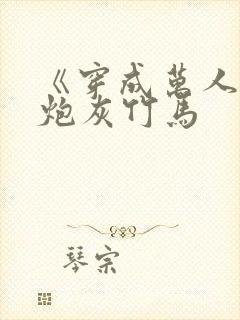 《穿成萬人
炮灰竹馬
琴宗